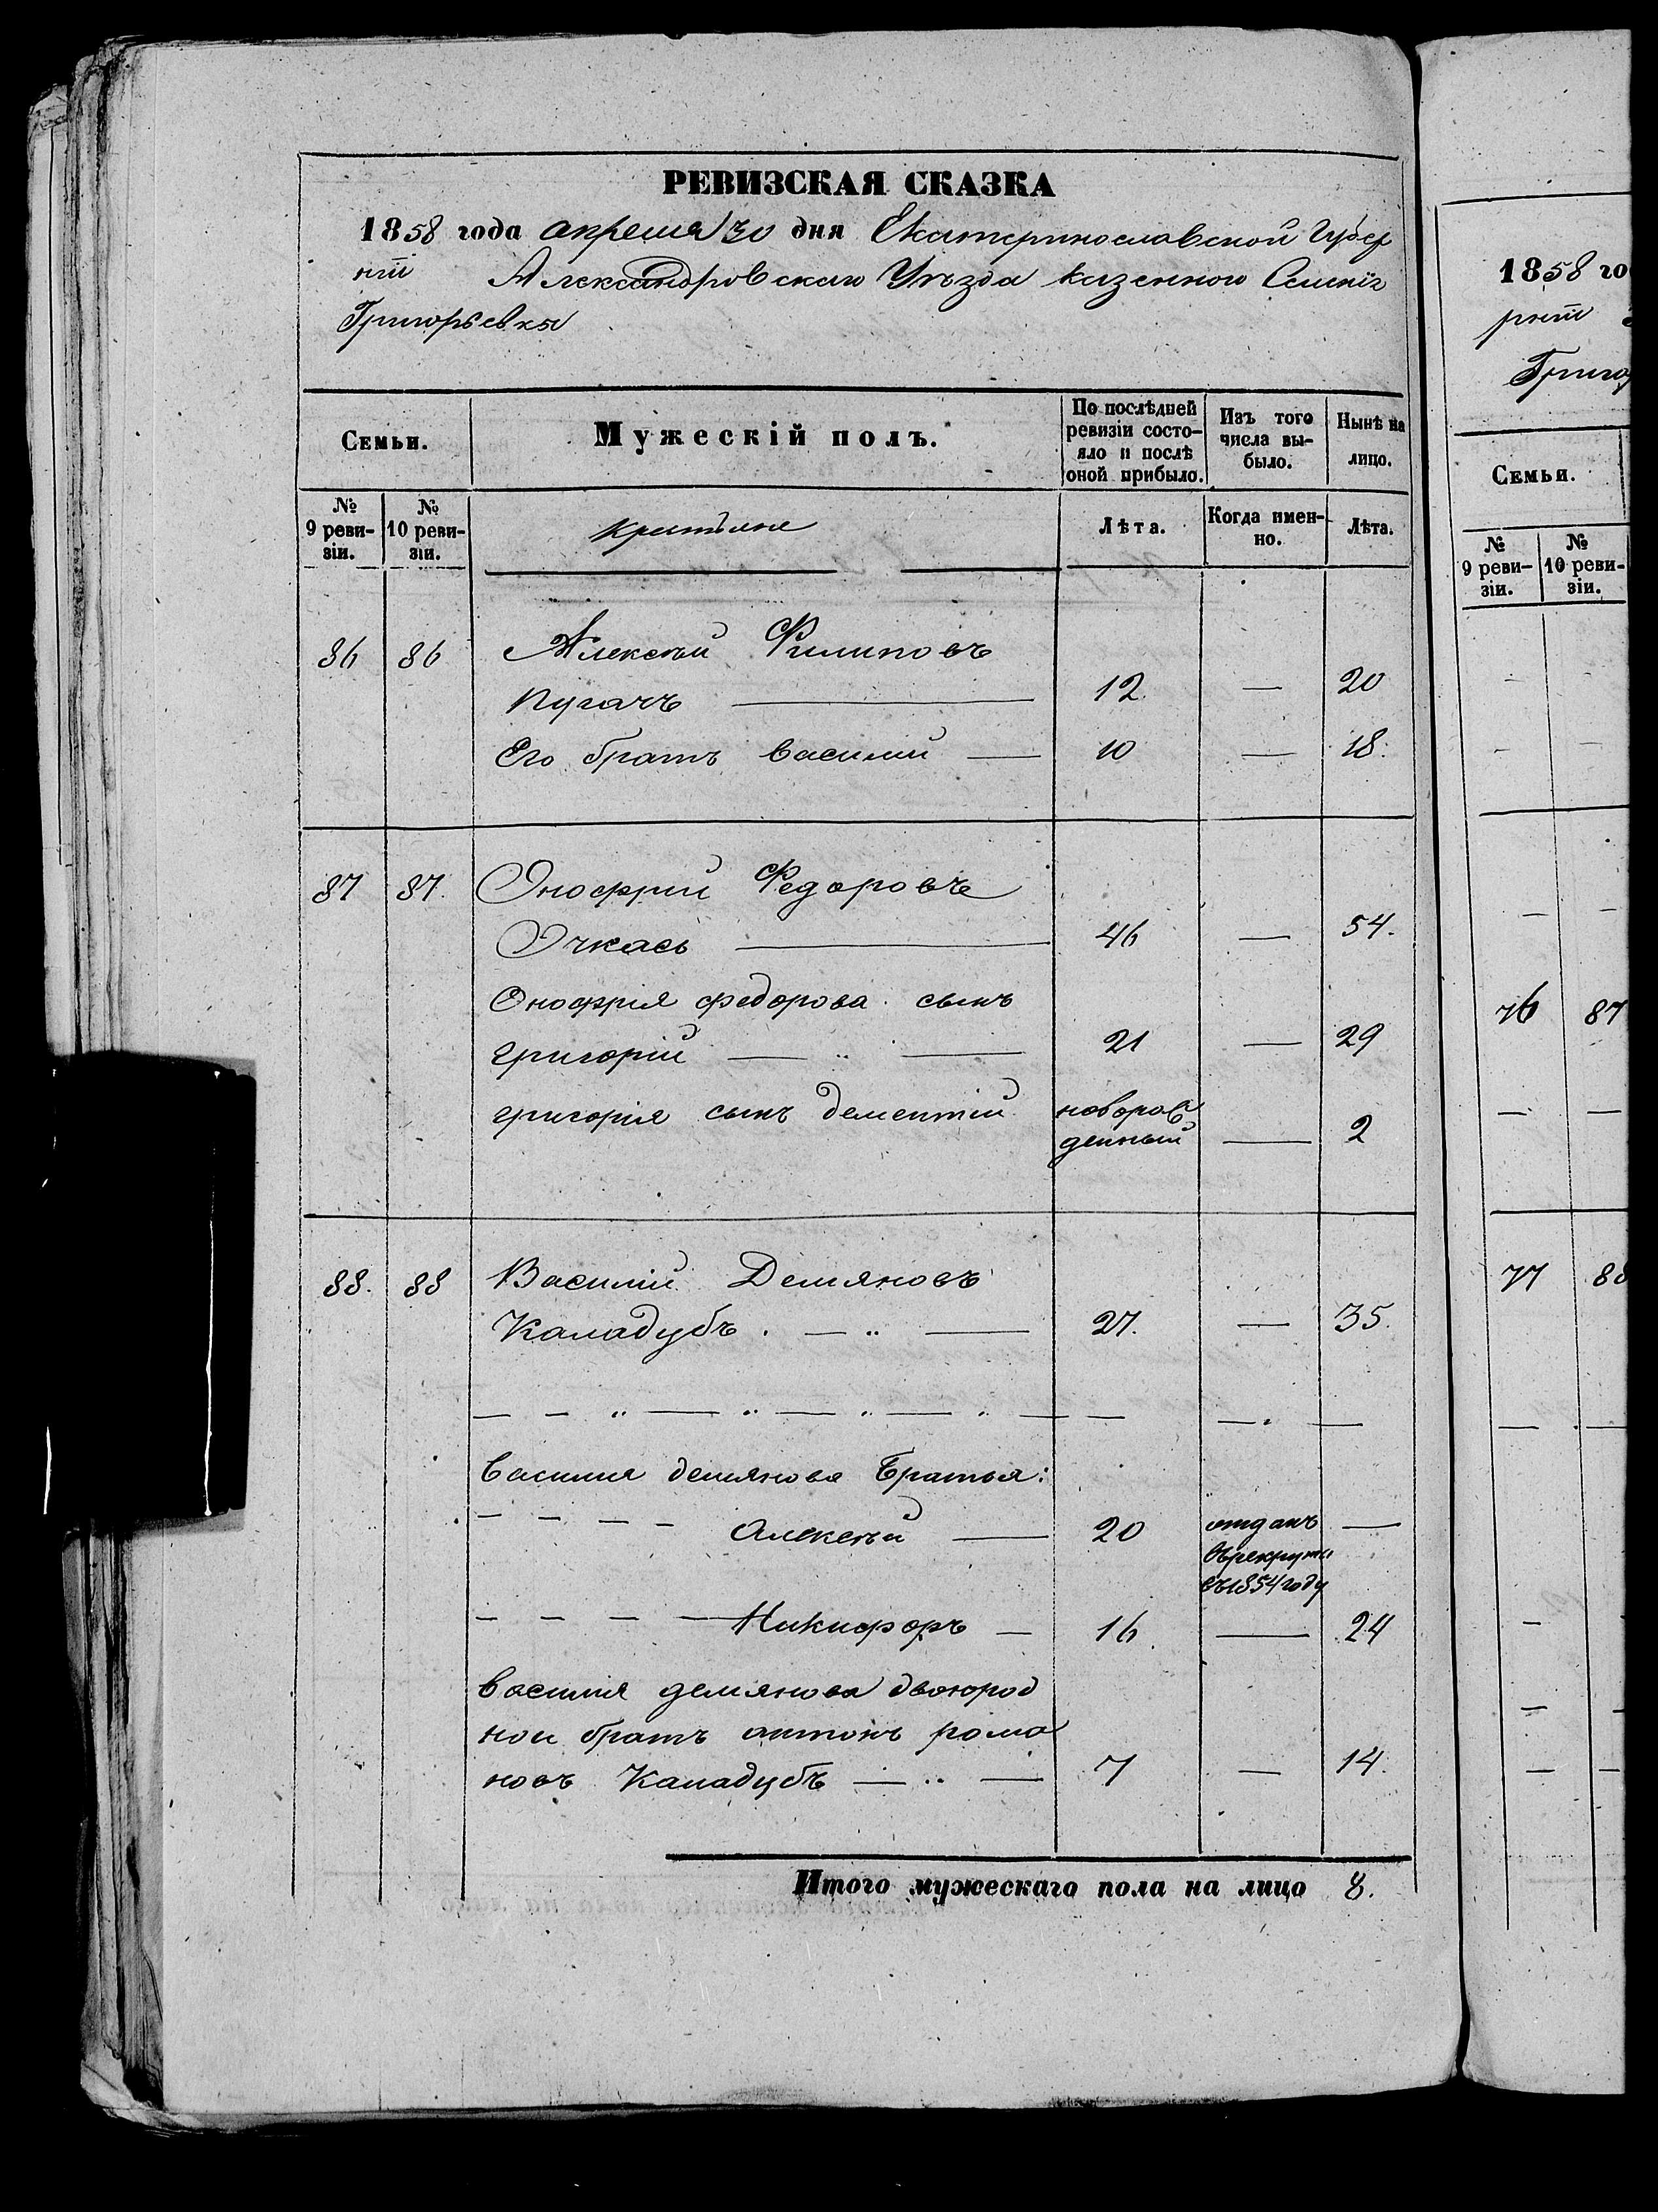 РЕВИЗСКАЯ СКАЗКА
1858 года апреля 30 дня Екатеринославской Губер
нiи Александровскаго Уѣзда казеннаго Селенiя
Григорьевки
Семьи. Мужескій полъ. По послѣдней ревизіи состо-яло и послѣ оной прибыло. Изъ того числа вы-было. Нынѣ на лицо.
№ 9 реви-зіи. № 10 реви-зіи. крестьяне Лѣта. Когда имен-но. Лѣта.
86 86 Алексѣй Филиповъ
Пугачъ 12 — 20
Его братъ василий — 10 — 18.
87 87. Оноффрий Федоровъ
Очкась 46 — 54.
Оноффрія федорова сынъ
григорій — „ — 21 — 29
григорія сынъ дементій новорож
денный — 2
88. 88 Василий Демяновъ
Каладубъ. — „ — 27. — 35.
— — „ — „ — „ — „ — — — „ —
василия демянова братья:
— — — — Алексѣй — 20 отданъ —
врекруты
въ 1854 году
— — — — Никифоръ — 16. — 24
василия демянова двоюрод
нои братъ антонъ рома
новъ Каладубъ — „ — 7 — 14.
Итого мужескаго пола на лицо 8.
1858 го
Григор
Семьи.
№ 9 реви-зіи. № 10 реви-зіи.
76 87
77 88